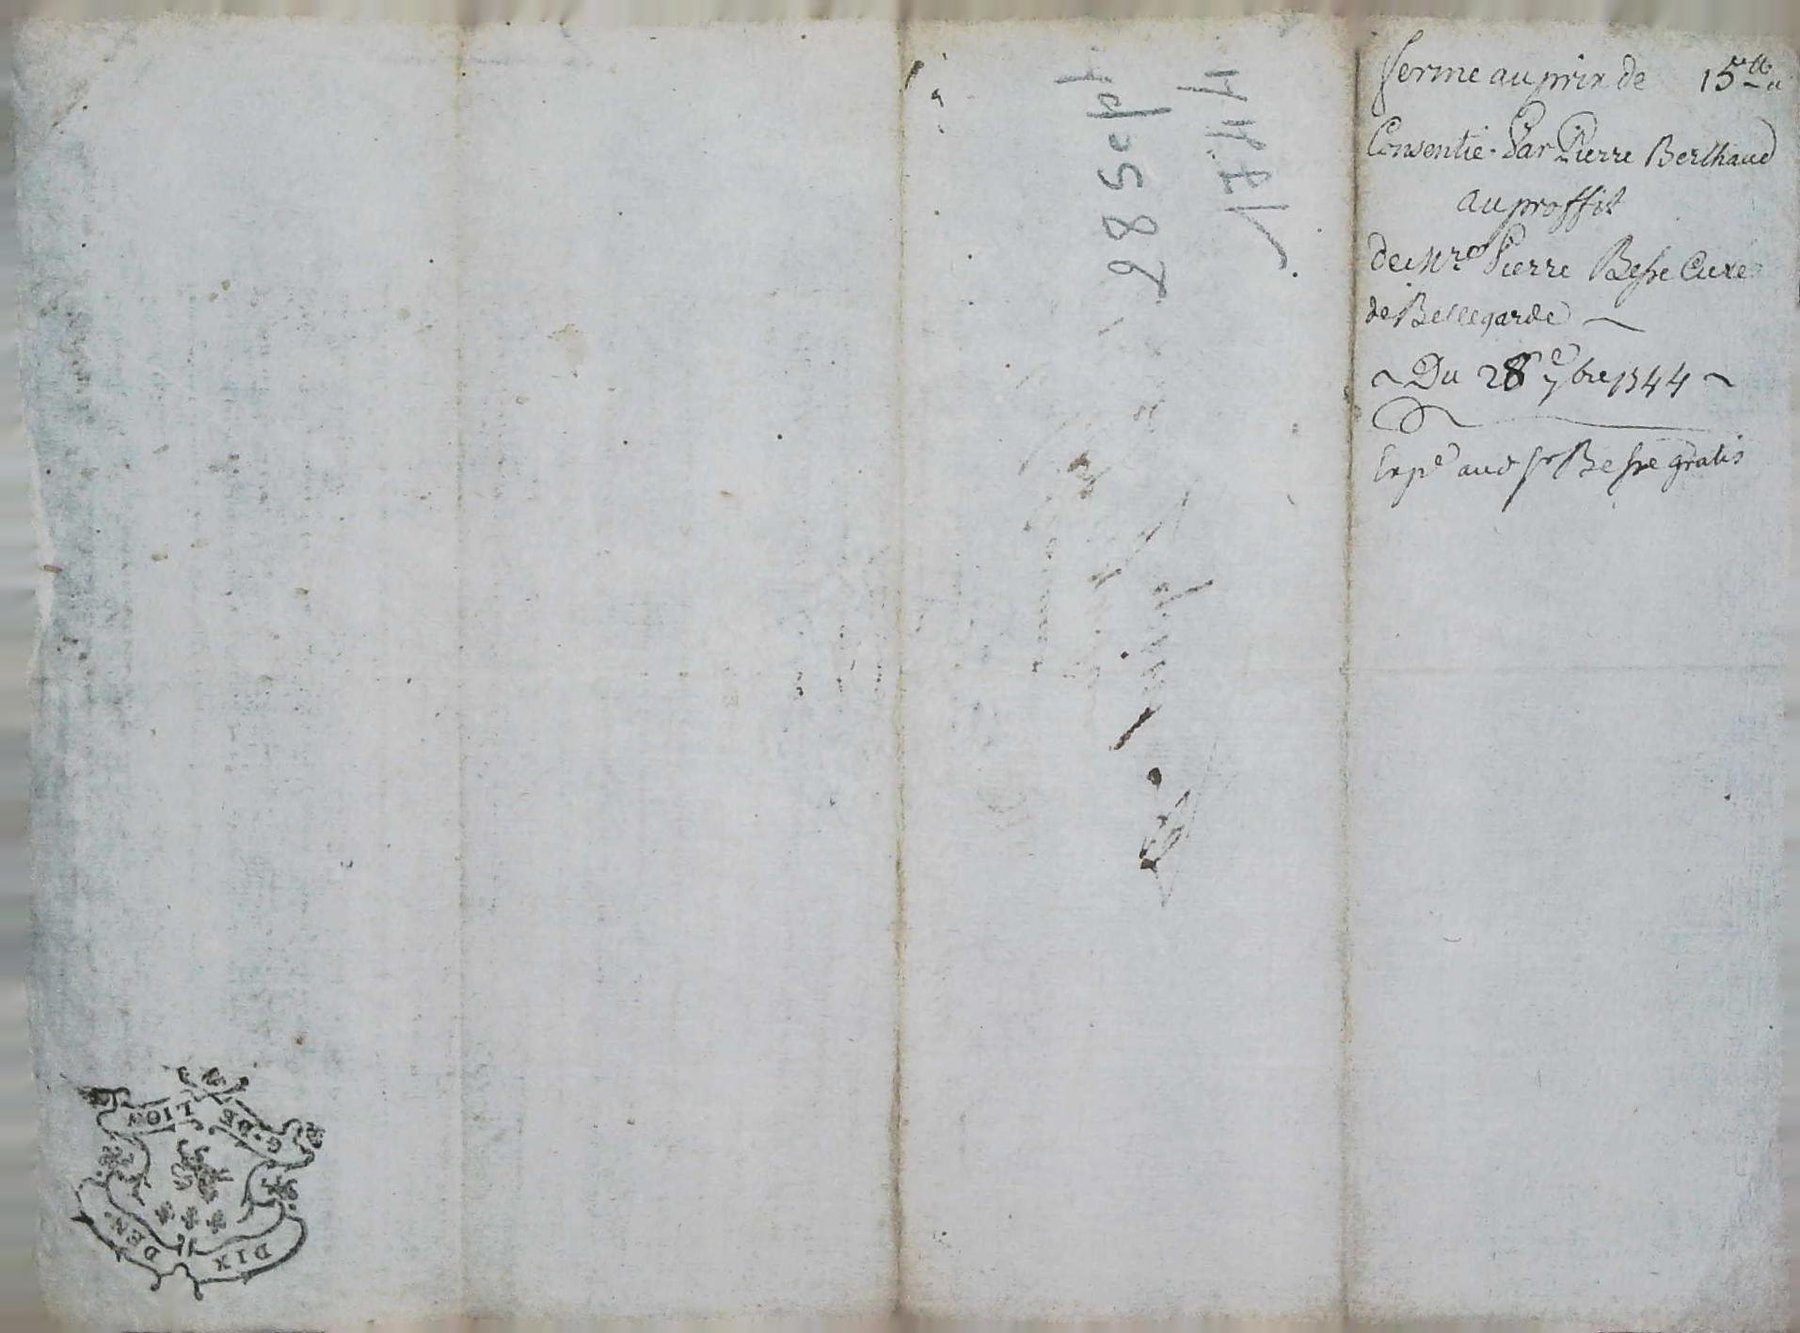 ferme au prix de 15 ₶
Consentie Par Pierre Berthaud
au proffit
de Mre Pierre Besse Curé
de Bellegarde
Du 28e 7bre 1744
Expé aud sr Besse gratis
28 Sept
1744
G. DE LION
DIX DEN.